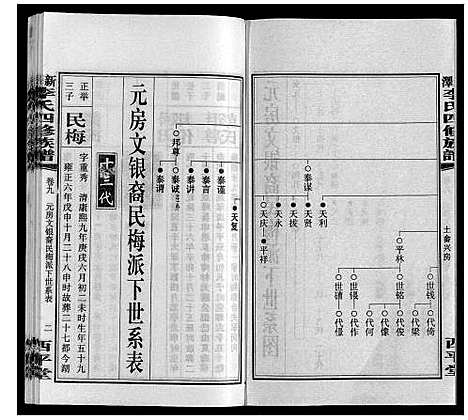 李氏四修族譜
土畲兴房
西平堂
世钱
代倚
代梁
平林
世铭
代俊
代像
代何
世锓
代作
代儇
世锖
天利
泰谋
天贤
天拔
天永
天庆
平祥
天复
泰谨
泰言
泰讲
邦尊
泰诚
泰谓
元房文银裔民梅派下世系表
十二代
正举
三子
民梅
字重秀 清康熙九年庚戌六月初二未时生年五十九
雍正六年戊申十月二十八申时故葬二十七都今湖
李氏四修族譜
卷九 元房文银裔民梅派下世系表
二
西平堂